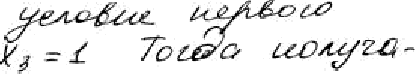 условие первого
x₃ = 1 Тогда получа-